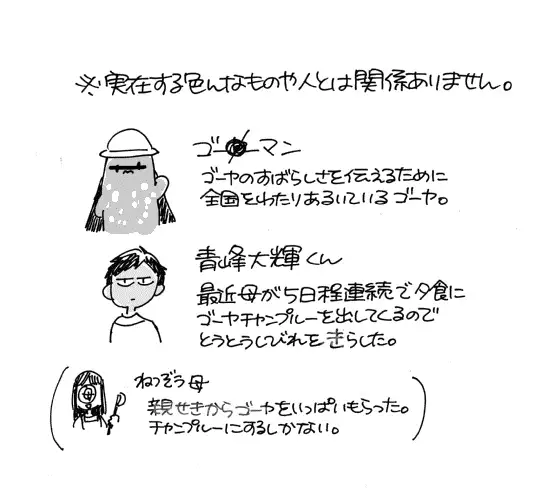 ※実在する色んなものや人とは関係ありません。
ゴーヤーマン
ゴーヤのすばらしさを伝えるために
全国をわたりあるいているゴーヤ。
青峰大輝くん
最近母が5日程連続で夕食に
ゴーヤチャンプルーを出してくるので
とうとうしびれをきらした。
ねつぞう母
母
親せきからゴーヤをいっぱいもらった。
チャンプルーにするしかない。